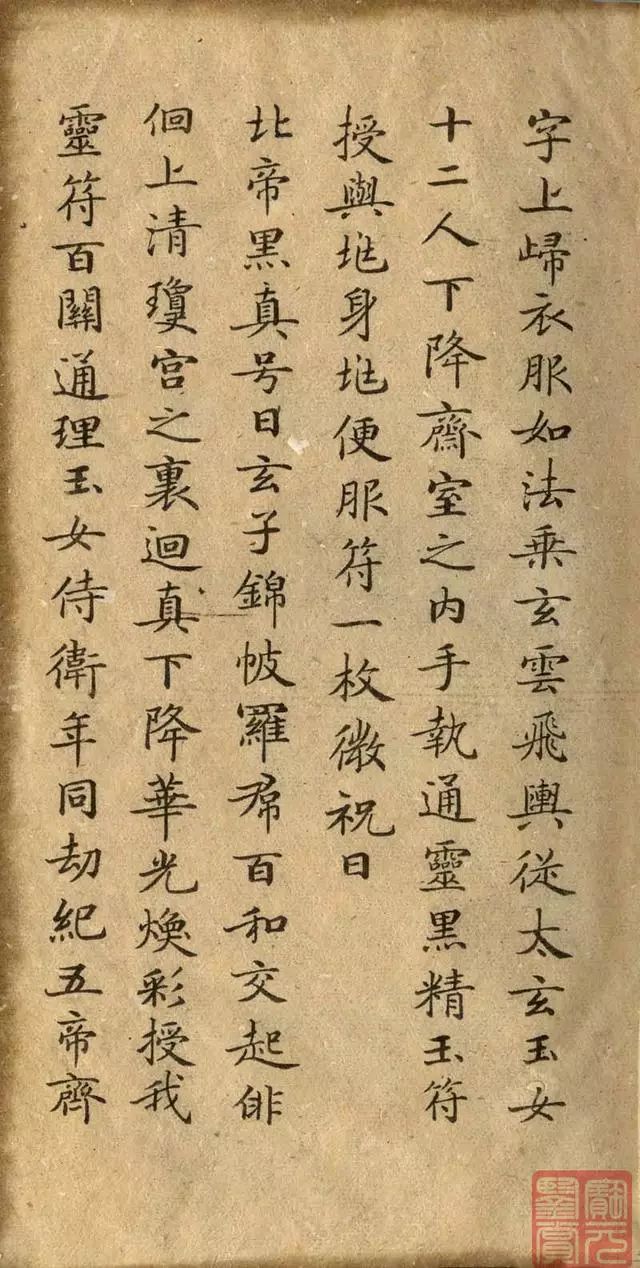 字上歸衣服如法乘玄雲飛輿從太玄玉女
十二人下降齋室之内手執通靈黑精玉符
授與兆身兆便服符一枚微祝曰
北帝黑真号曰玄子錦帔羅帬百和交起俳
佪上清瓊宫之裏迴真下降華光煥彩授我
靈符百關通理玉女侍衛年同劫紀五帝齊
寶元
鑒賞